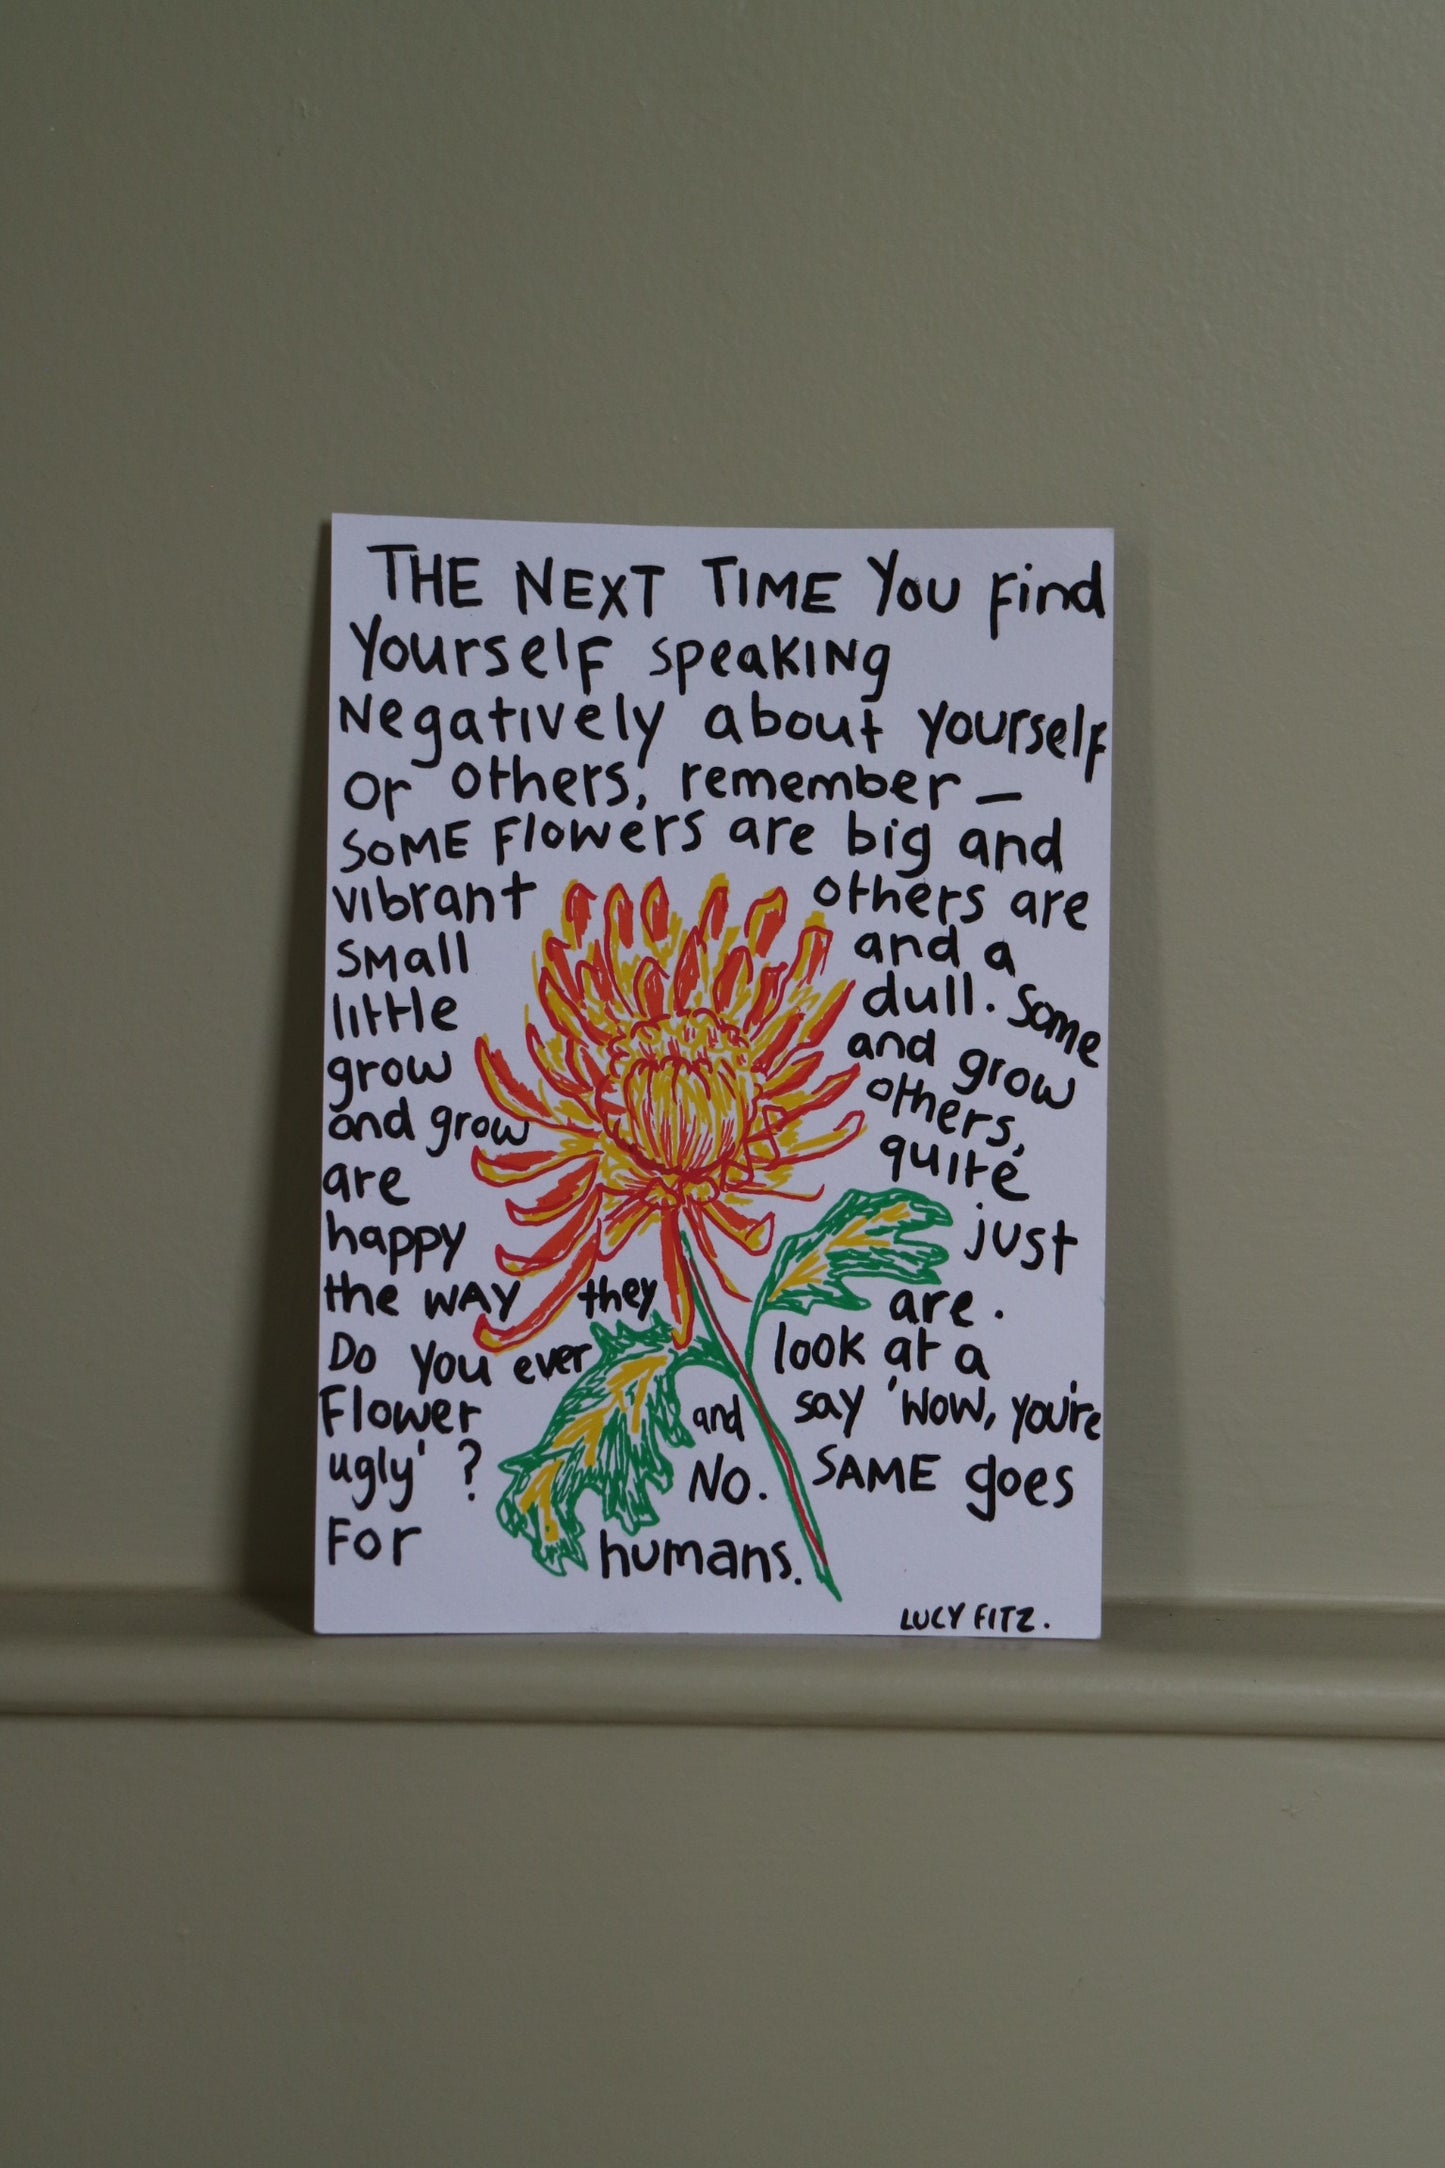 THE NEXT TIME YOU Find
Yourself speaking
Negatively about yourself
or others, remember —
SOME Flowers are big and
vibrant others are
small and a
little dull. Some
grow and grow
and grow others,
are quite
happy just
the WAY they are.
Do you ever look at a
Flower and say 'WOW, you're
ugly' ? NO. SAME goes
For humans.
LUCY FITZ.